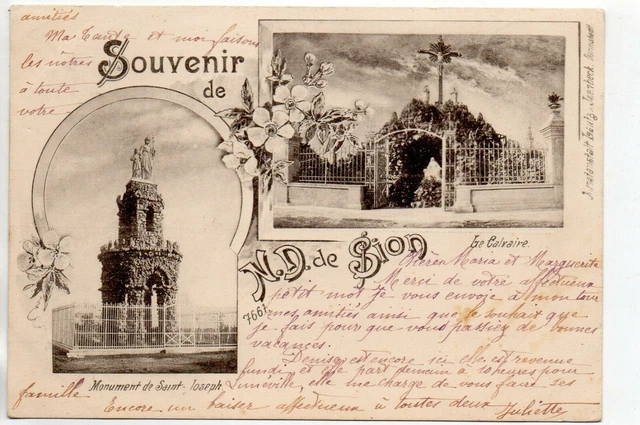 Souvenir
de
N.D. de Sion
Le Calvaire.
Monument de Saint-Joseph
7661
Maria et Marguerite
Merci de votre affectueux
petit mot je vous envoye à mon tour
mes amitiés ainsi que le souhait que
je fais pour que vous passiez de bonnes
vacances.
Denise est encore ici elle est revenue
lundi et elle part demain à 10 heures pour
Lunéville, elle me charge de vous faire ses
amitiés
Ma Tante et moi faisons
les nôtres
à toute
votre
famille
Encore un baiser affectueux à toutes deux
Juliette